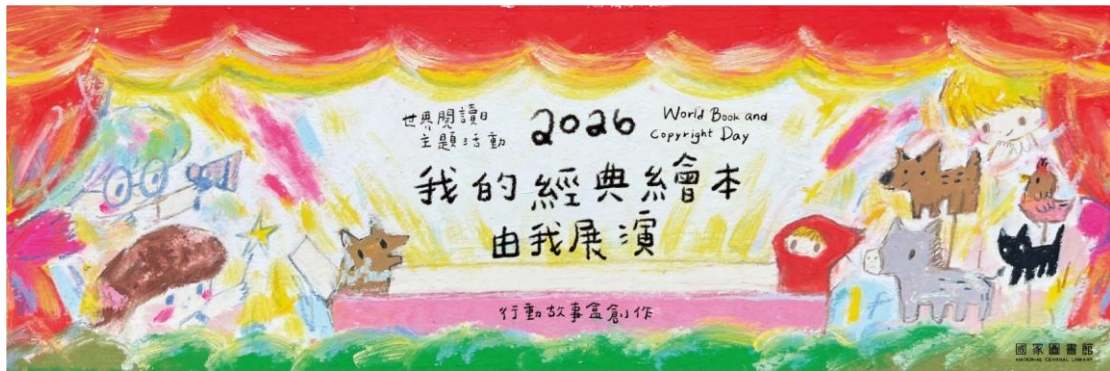 世界閱讀日
主題活動
2026
World Book and
Copyright Day
我的經典繪本
由我展演
行動故事盒創作
國家圖書館
NATIONAL CENTRAL LIBRARY